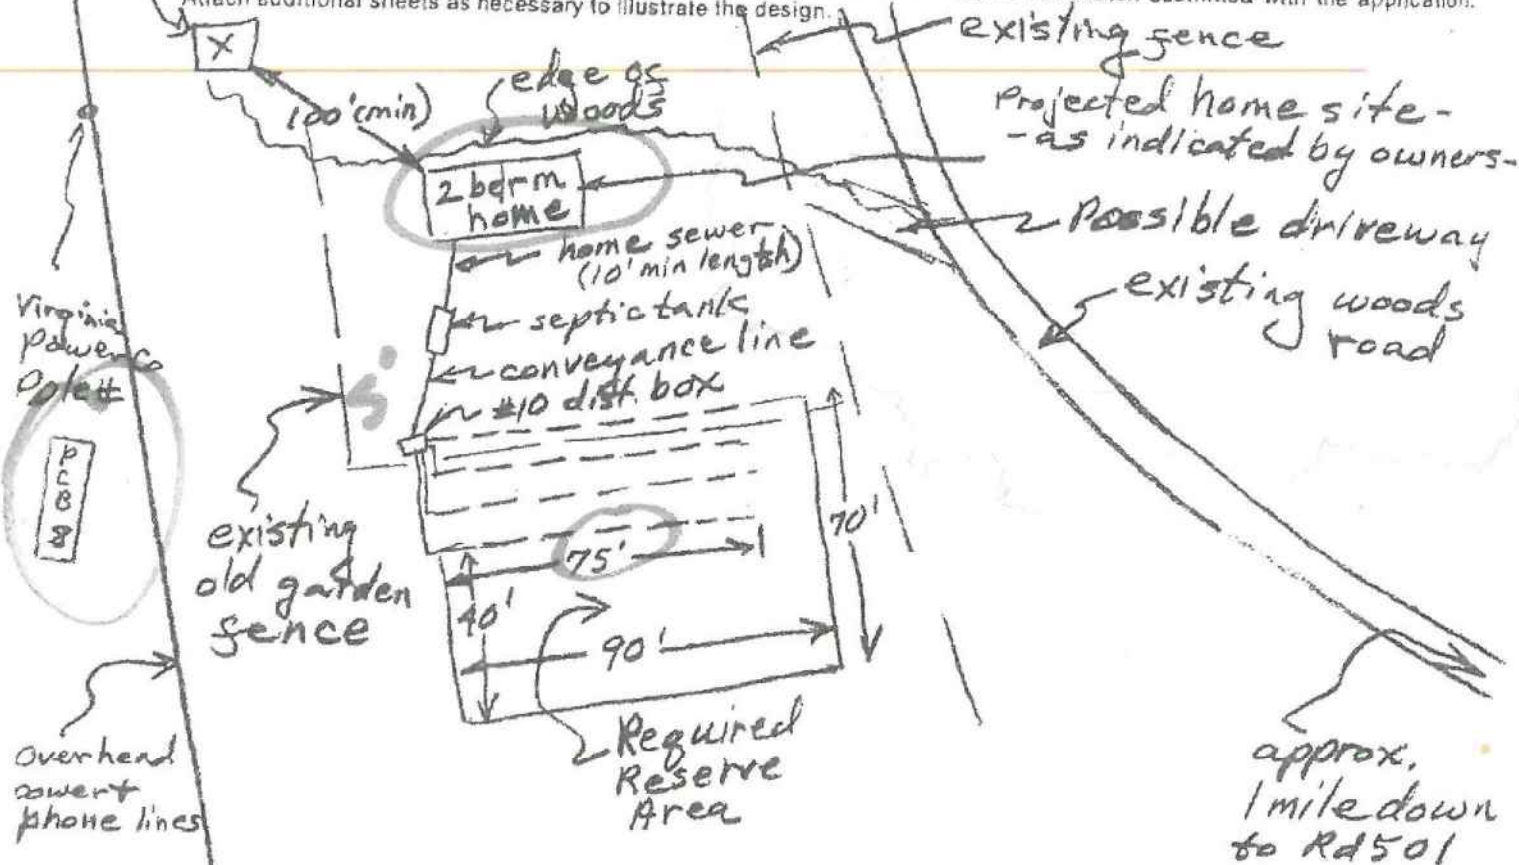 Attach additional sheets as necessary to illustrate the design.
with the application.
X
100'(min)
edge of
woods
existing fence
Projected home site-
-as indicated by owners-
2 bdrm
home
Possible driveway
home sewer
(10' min length)
existing woods
road
septic tank
conveyance line
#10 dist. box
Virginia
Power Co
Pole#
P
C
B
8
5'
existing
old garden
fence
75'
70'
40'
90'
Required
Reserve
Area
Overhead
power+
phone lines
approx.
1 mile down
to Rd 501